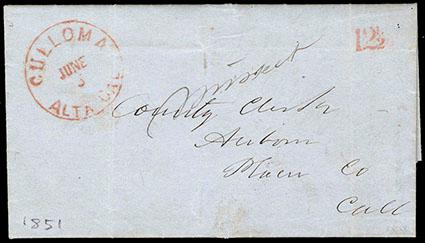 CULLOMA
JUNE
5
ALTA CAL
12½
missent
County Clerk
Auborn
Placer Co
Call
1851